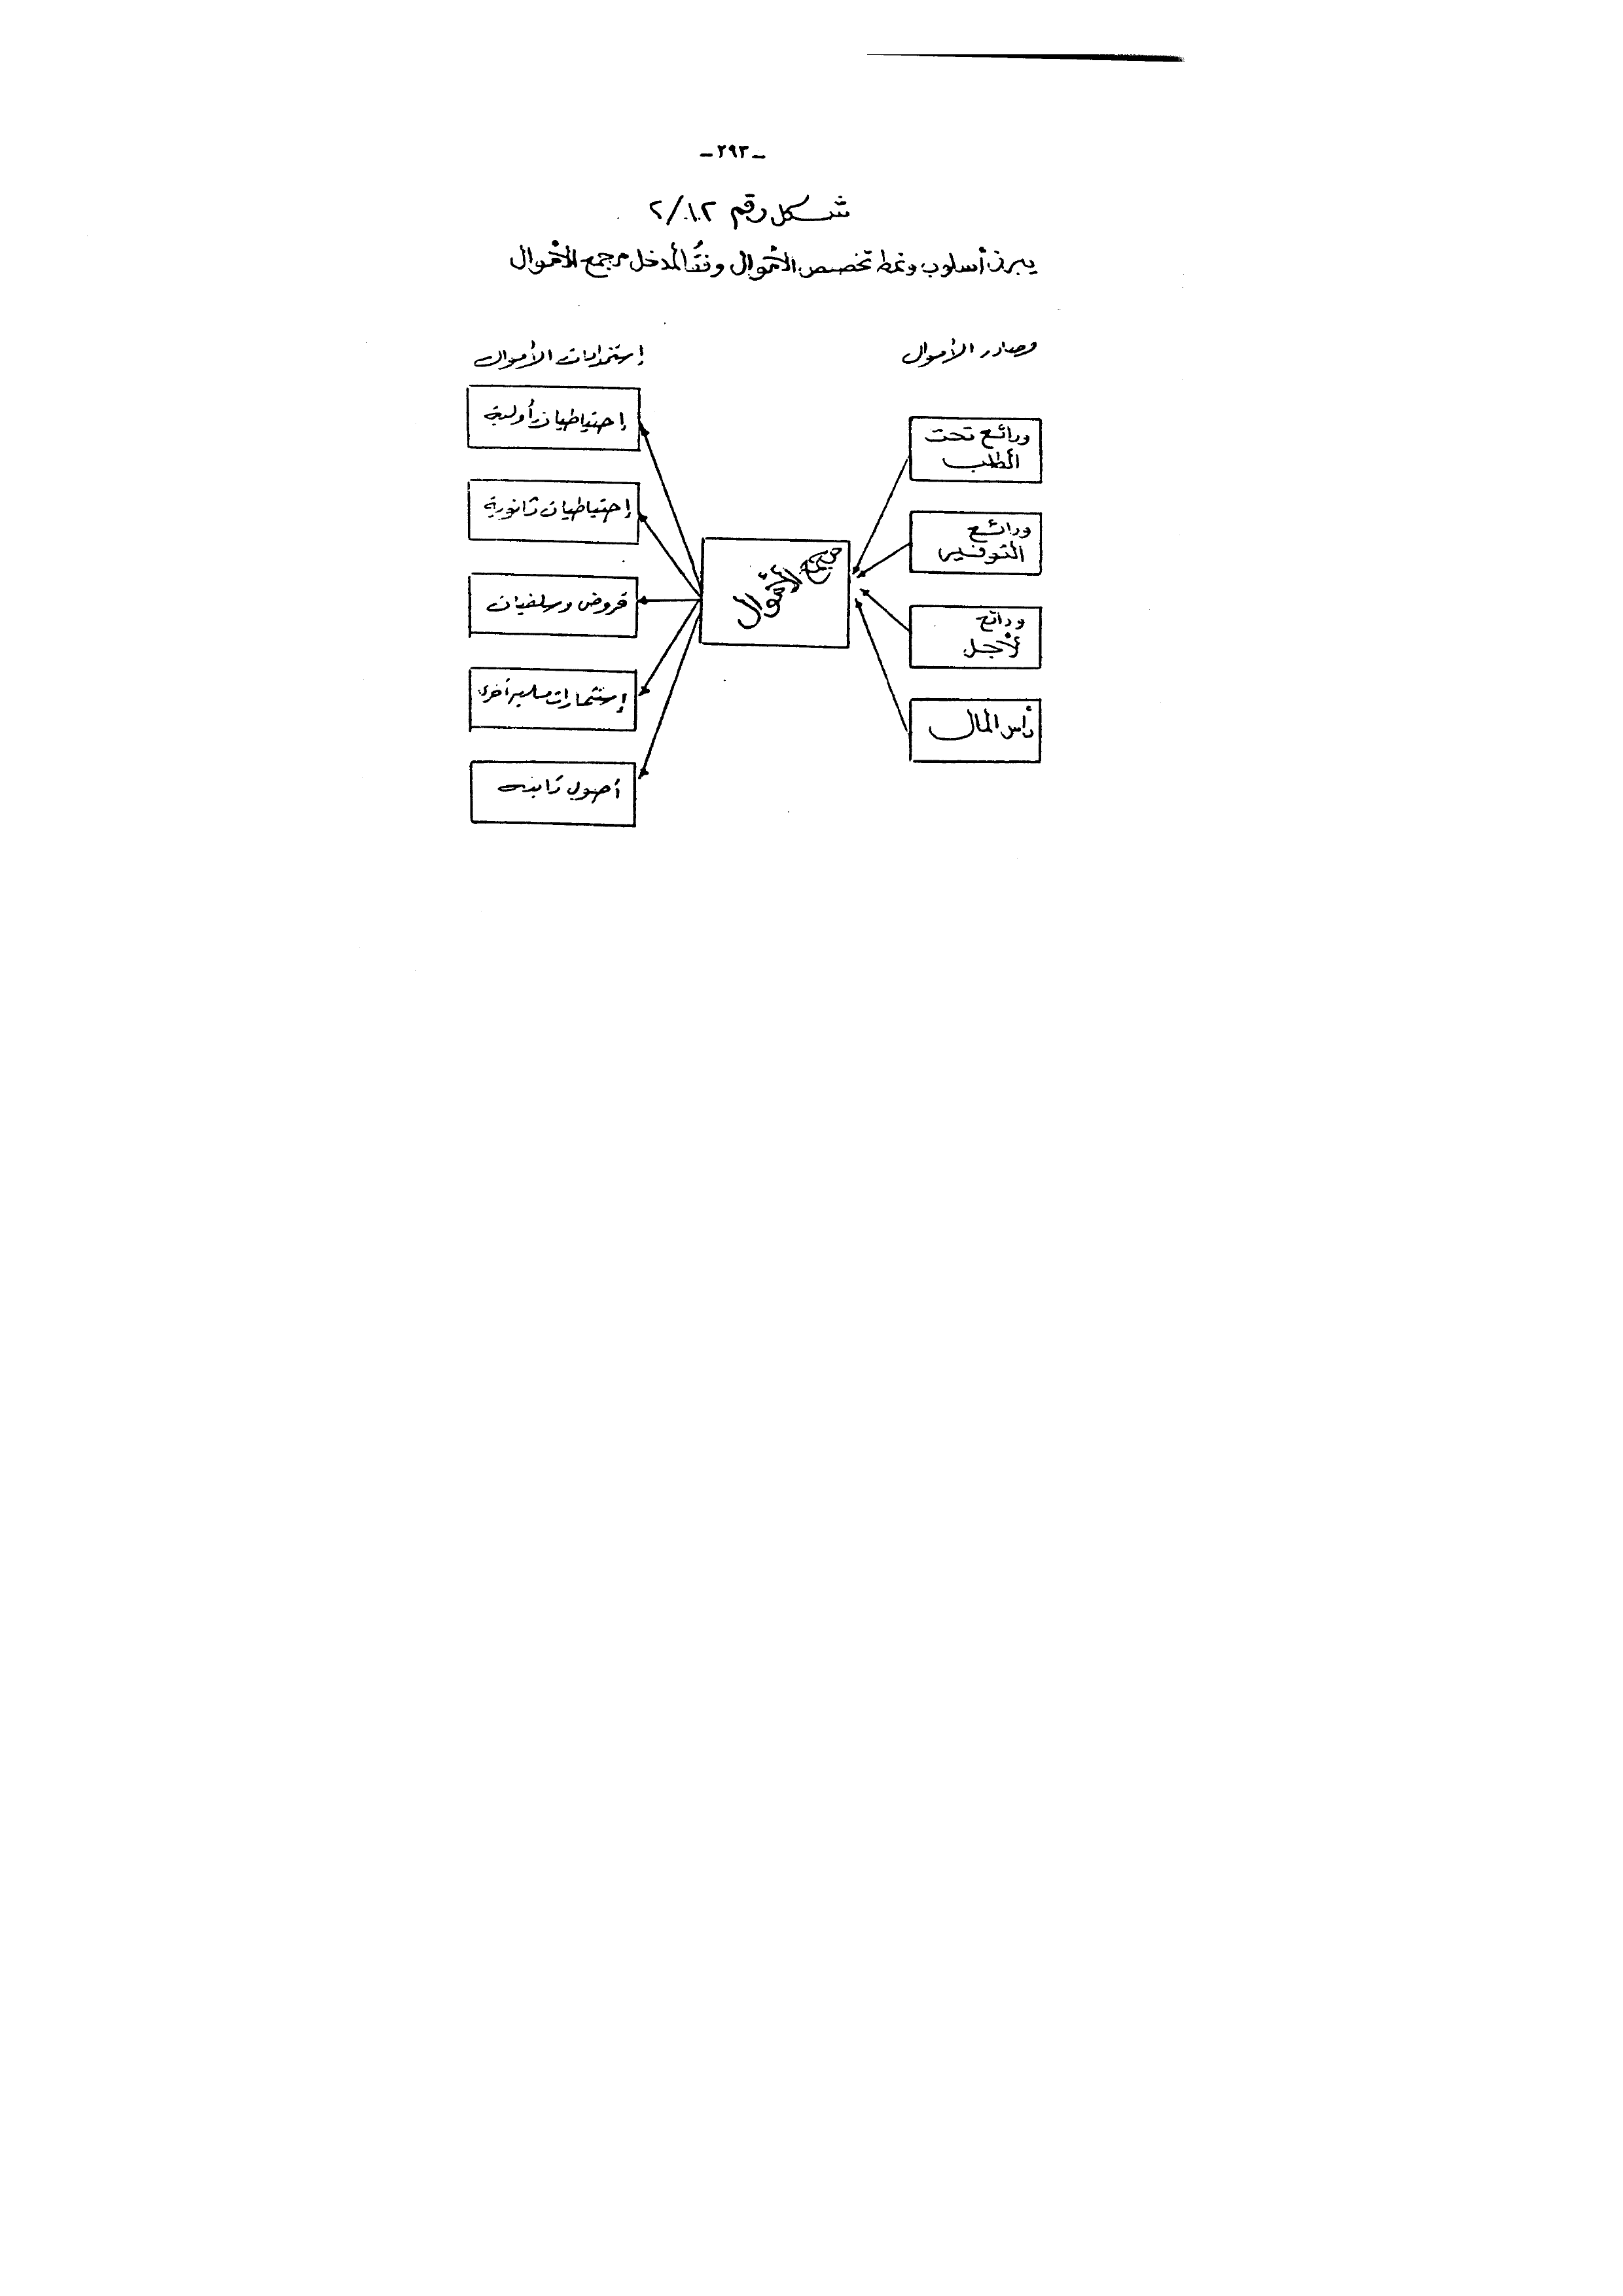 ـ ٢٩٣ ـ
شكل رقم ٢/١٠.٢
يبرز أسلوب ونمط تخصيص الأموال وفقاً لمدخل مجمع الأموال
مصادر الأموال
ودائع تحت
الطلب
ودائع
التوفير
ودائع
لأجل
رأس المال
مجمع الأموال
إستخدامات الأموال
إحتياطيات أولية
إحتياطيات ثانوية
قروض وسلفيات
إستثمارات مالية أخرى
أصول ثابتة